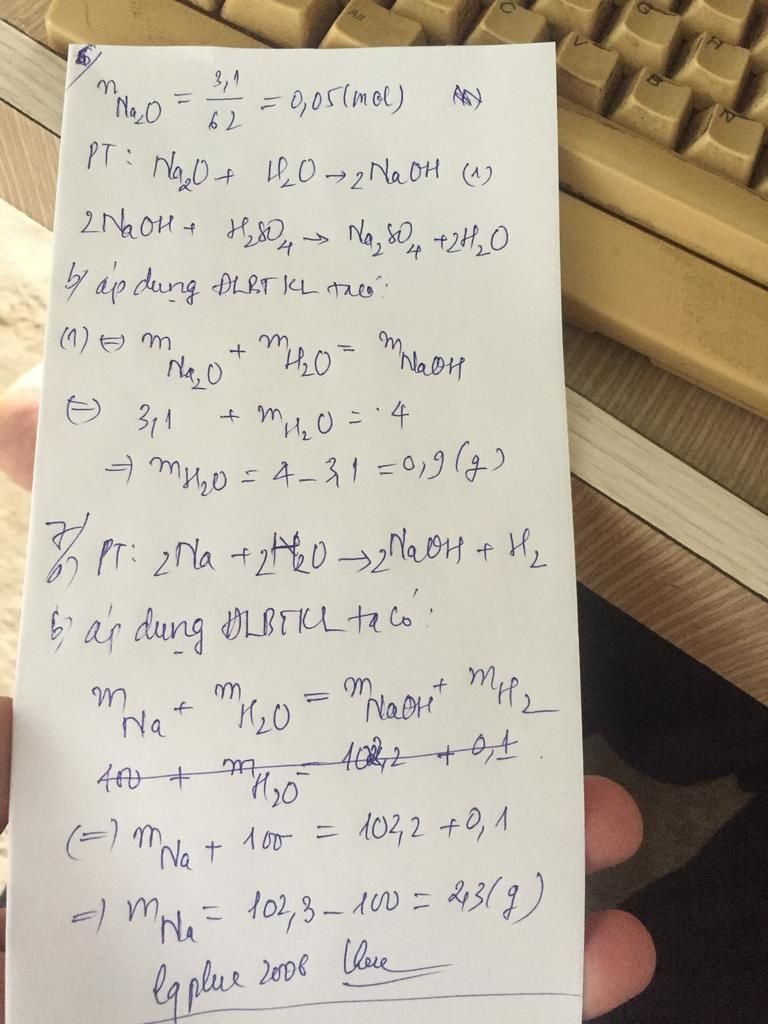 6/
nNa2O = 3,1/62 = 0,05 (mol)
PT: Na2O + H2O → 2NaOH (1)
2NaOH + H2SO4 → Na2SO4 + 2H2O
b, áp dụng ĐLBTKL ta có:
(1) ⇔ mNa2O + mH2O = mNaOH
⇔ 3,1 + mH2O = 4
⇒ mH2O = 4 - 3,1 = 0,9 (g)
7/
a, PT: 2Na + 2H2O → 2NaOH + H2
b, áp dụng ĐLBTKL ta có:
mNa + mH2O = mNaOH + mH2
100 + mH2O = 102,2 + 0,1
(=) mNa + 100 = 102,2 + 0,1
=) mNa = 102,3 - 100 = 2,3 (g)
2008